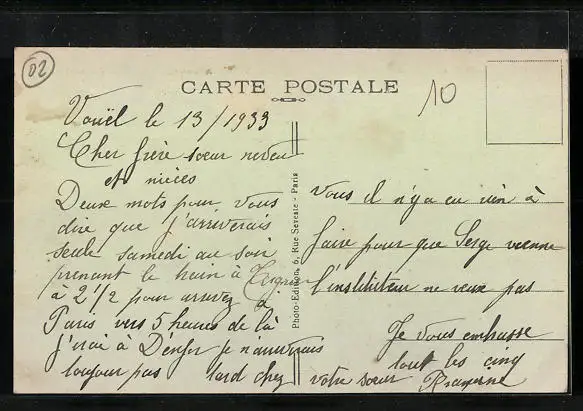 02
CARTE POSTALE
10
Vouël le 13/1933
Cher frère soeur neveu
et nièces
Deux mots pour vous
dire que j'arriverais
seule samedi au soir
prenant le train à Tergnier
à 2 1/2 pour arrivez à
Paris vers 5 heures de là
j'irai à Denfer je n'arriverais
toujour pas tard chez
vous il n'y a eu rien à
faire pour que Serge vienne
l'instituteur ne veux pas
Je vous embrasse
tout les cinq
votre soeur
Photo-Edition, 6, Rue Seveste - Paris